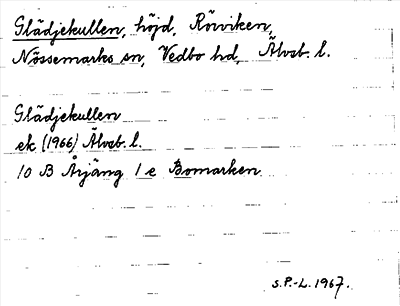 Glädjekullen, höjd, Rörviken,
Nössemarks sn, Vedbo hd, Älvsb. l.
Glädjekullen
ek (1966) Älvsb. l.
10 B Årjäng 1 e Bomarken
S.P.-L. 1967.